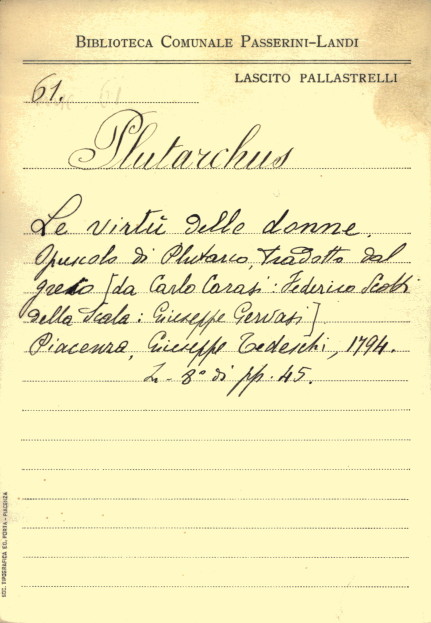 BIBLIOTECA COMUNALE PASSERINI-LANDI
LASCITO PALLASTRELLI
61.
Plutarchus
Le virtù delle donne.
Opuscolo di Plutarco, tradotto dal
greco [da Carlo Carasi: Federico Scotti
della Scala: Giuseppe Gervasi]
Piacenza, Giuseppe Tedeschi, 1794.
In-8° di pp. 45.
TIPOGRAFICA ED. PORTA - PIACENZA